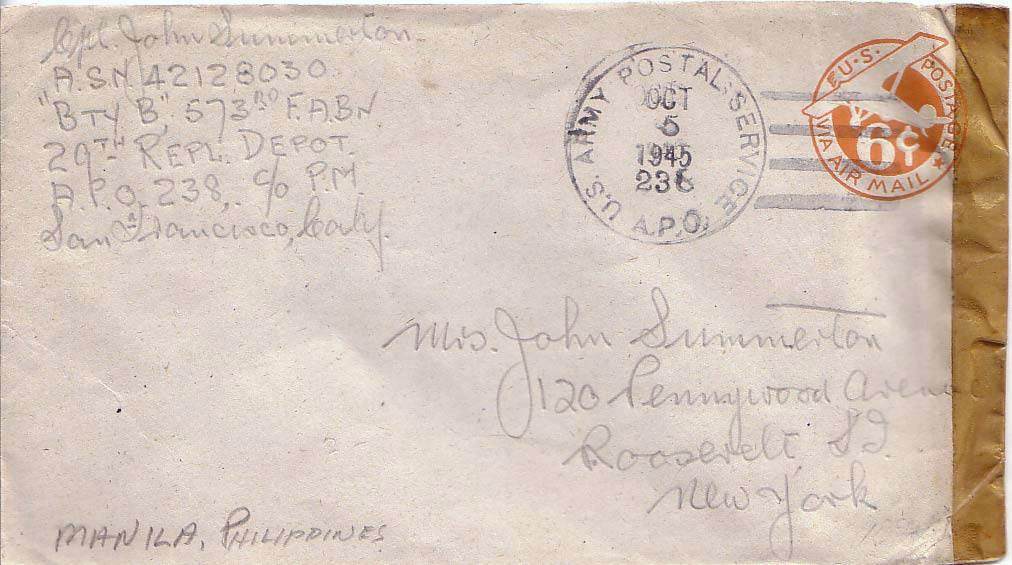 Cpl. John Summerton
A.S.N. 42128030
"BTY B", 573RD F.A.BN
29TH REPL. DEPOT.
A.P.O. 238, c/o P.M
San Francisco, Calif.
U.S. ARMY POSTAL SERVICE
OCT
5
1945
238
A.P.O.
U.S. POSTAGE
6¢
VIA AIR MAIL
Mrs. John Summerton
120 Pennywood Avenue
Roosevelt, L.I.
New York
MANILA, PHILIPPINES